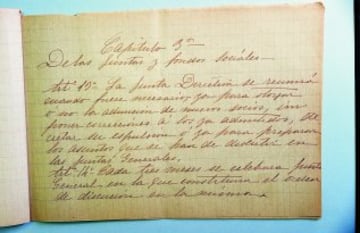 Capitulo 3º
De las juntas y fondos sociales
Art. 13º La junta Directiva se reunirá
cuando fuere necesario, ya para otorgar
o no la admision de nuevos socios, im
poner correcciones á los ya admitidos, de
cretar su espulsion ó ya para preparar
los asuntos que se han de discutir en
las juntas Generales.
Art. 14º Cada tres meses se celebrara junta
General en la que constituira el orden
de discusion en la misma.